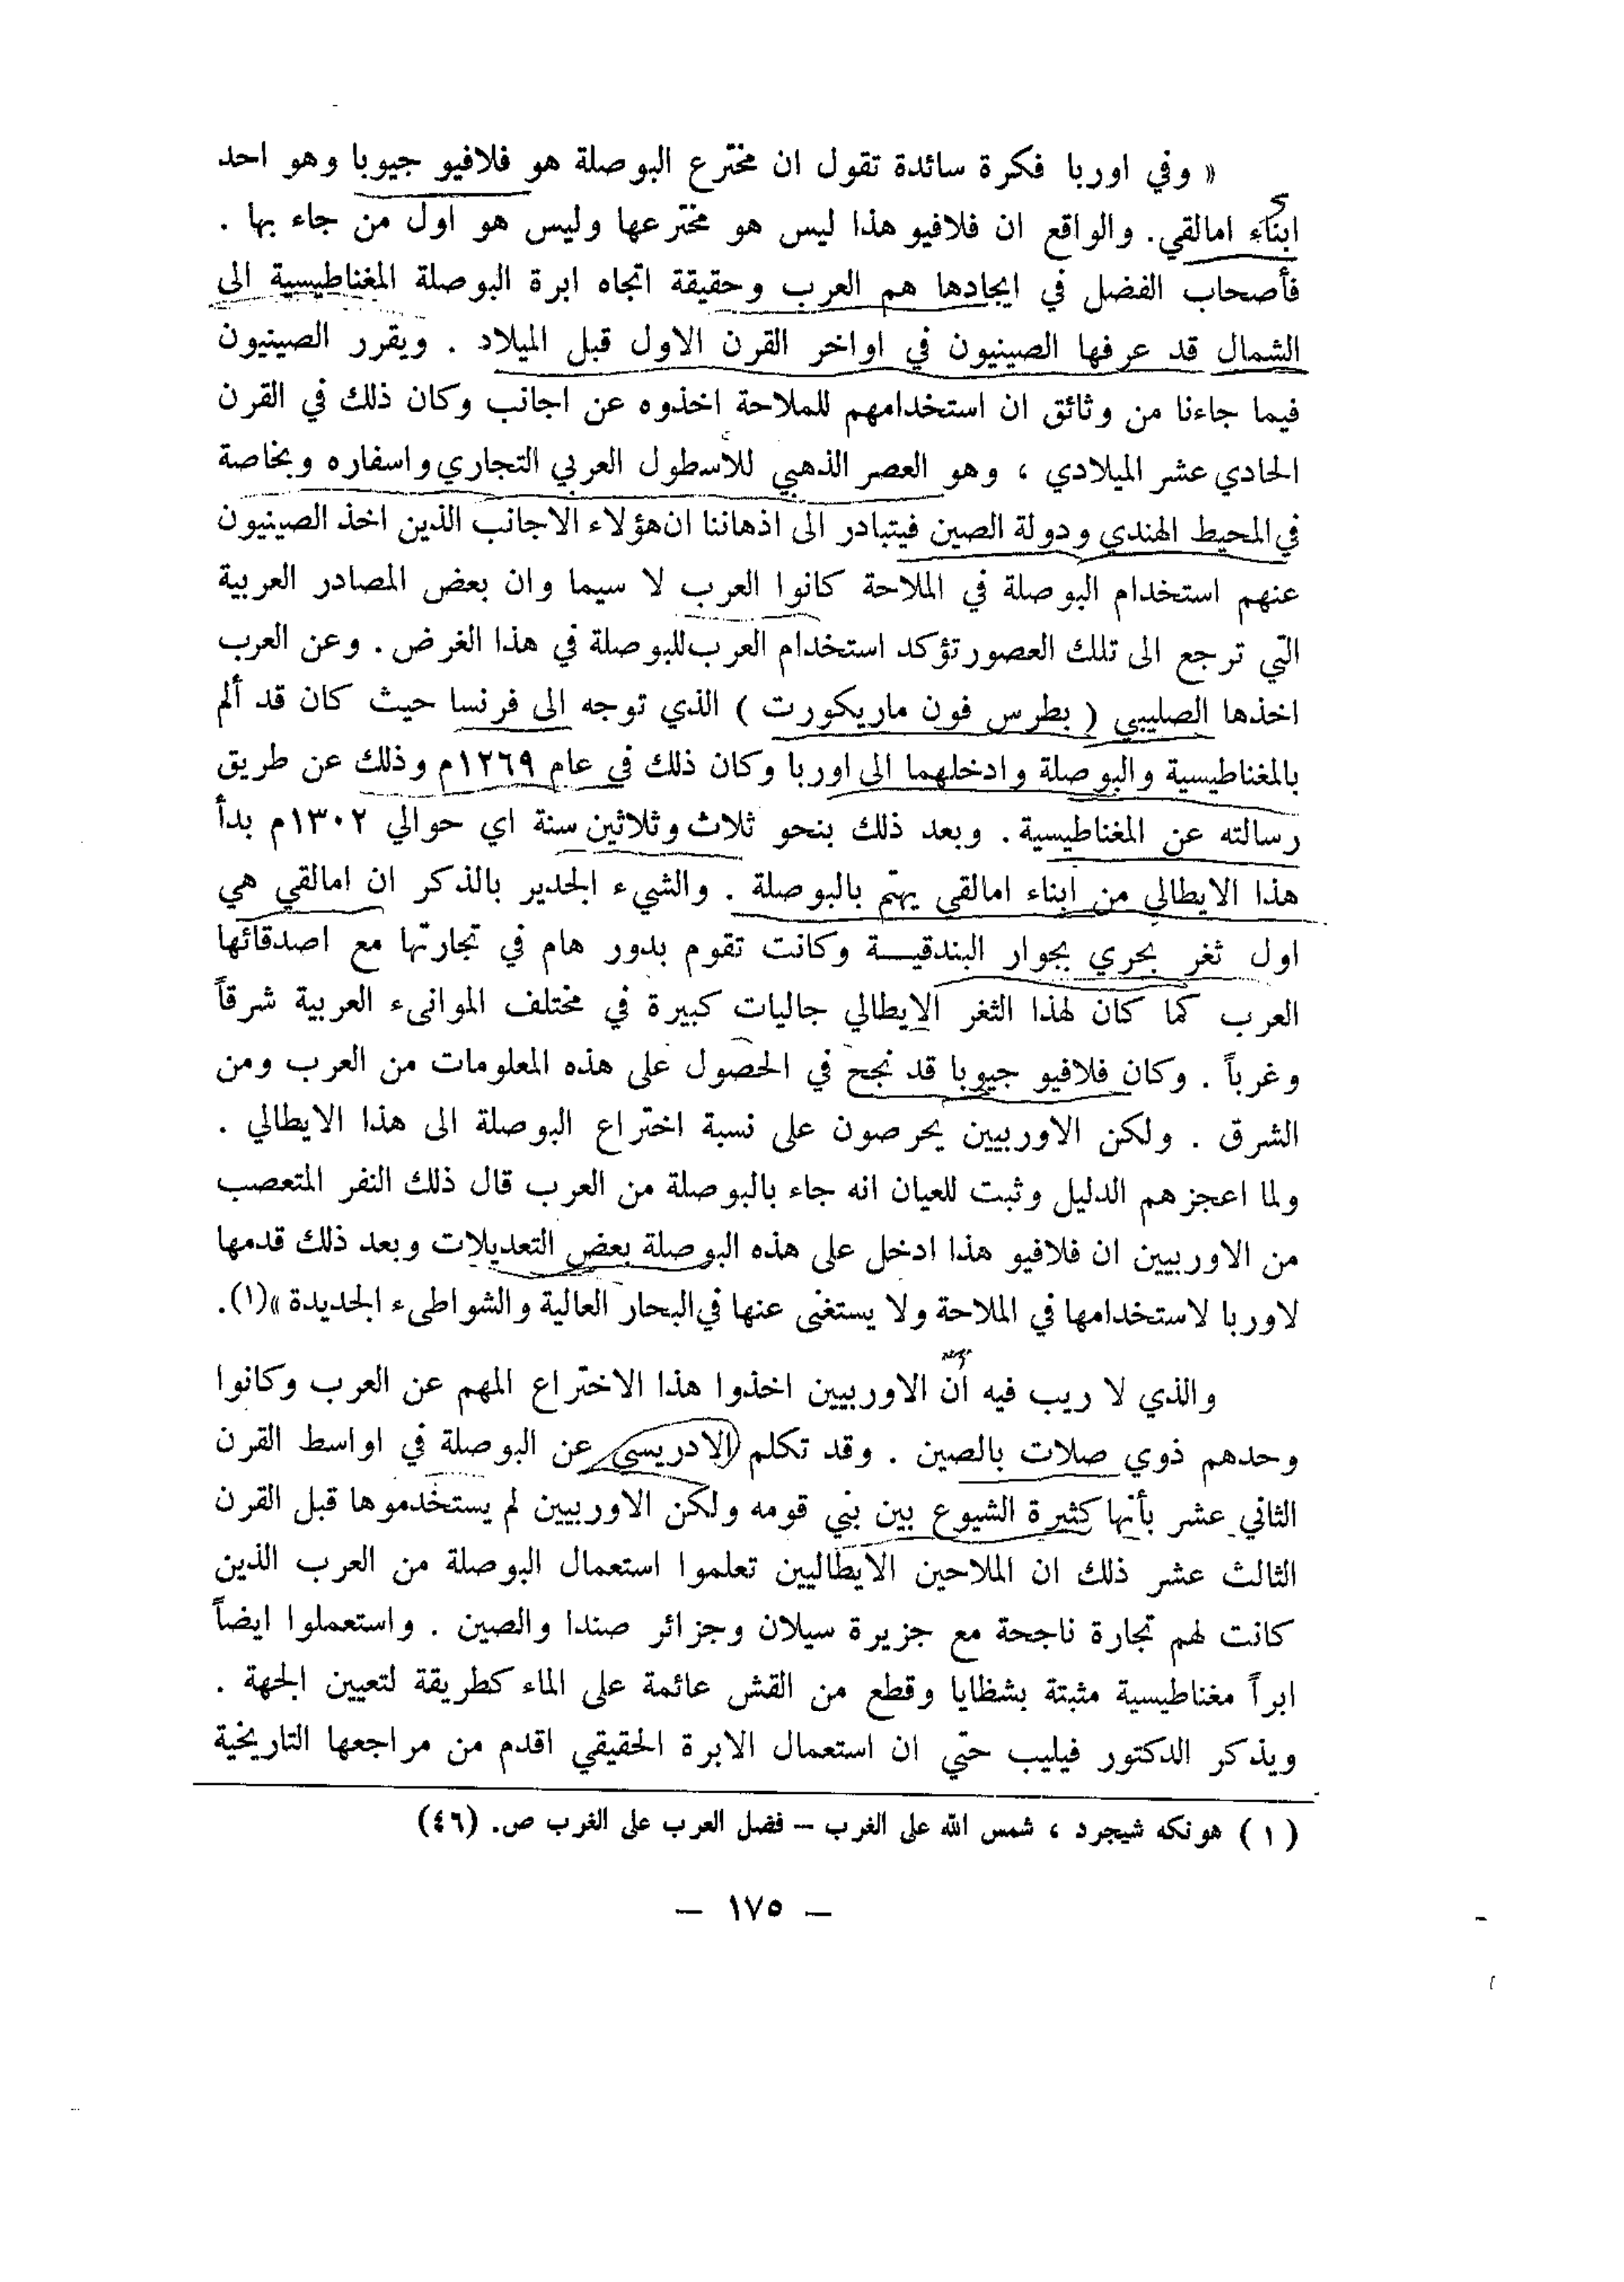 « وفي اوربا فكرة سائدة تقول ان مخترع البوصلة هو فلافيو جيوبا وهو احد
ابناء امالقي. والواقع ان فلافيو هذا ليس هو مخترعها وليس هو اول من جاء بها .
فأصحاب الفضل في ايجادها هم العرب وحقيقة اتجاه ابرة البوصلة المغناطيسية الى
الشمال قد عرفها الصينيون في اواخر القرن الاول قبل الميلاد . ويقرر الصينيون
فيما جاءنا من وثائق ان استخدامهم للملاحة اخذوه عن اجانب وكان ذلك في القرن
الحادي عشر الميلادي ، وهو العصر الذهبي للأسطول العربي التجاري واسفاره وبخاصة
في المحيط الهندي ودولة الصين فيتبادر الى اذهاننا ان هؤلاء الاجانب الذين اخذ الصينيون
عنهم استخدام البوصلة في الملاحة كانوا العرب لا سيما وان بعض المصادر العربية
التي ترجع الى تلك العصور تؤكد استخدام العرب للبوصلة في هذا الغرض . وعن العرب
اخذها الصليبي ( بطرس فون ماريكورت ) الذي توجه الى فرنسا حيث كان قد ألم
بالمغناطيسية والبوصلة وادخلهما الى اوربا وكان ذلك في عام ١٢٦٩م وذلك عن طريق
رسالته عن المغناطيسية . وبعد ذلك بنحو ثلاث وثلاثين سنة اي حوالي ١٣٠٢م بدأ
هذا الايطالي من ابناء امالقي يهتم بالبوصلة . والشيء الجدير بالذكر ان امالقي هي
اول ثغر بحري بجوار البندقيـــة وكانت تقوم بدور هام في تجارتها مع اصدقائها
العرب كما كان لهذا الثغر الايطالي جاليات كبيرة في مختلف الموانىء العربية شرقاً
وغرباً . وكان فلافيو جيوبا قد نجح في الحصول على هذه المعلومات من العرب ومن
الشرق . ولكن الاوربيين يحرصون على نسبة اختراع البوصلة الى هذا الايطالي .
ولما اعجزهم الدليل وثبت للعيان انه جاء بالبوصلة من العرب قال ذلك النفر المتعصب
من الاوربيين ان فلافيو هذا ادخل على هذه البوصلة بعض التعديلات وبعد ذلك قدمها
لاوربا لاستخدامها في الملاحة ولا يستغنى عنها في البحار العالية والشواطىء الجديدة »(١).
والذي لا ريب فيه ان الاوربيين اخذوا هذا الاختراع المهم عن العرب وكانوا
وحدهم ذوي صلات بالصين . وقد تكلم الادريسي عن البوصلة في اواسط القرن
الثاني عشر بأنها كثيرة الشيوع بين بني قومه ولكن الاوربيين لم يستخدموها قبل القرن
الثالث عشر ذلك ان الملاحين الايطاليين تعلموا استعمال البوصلة من العرب الذين
كانت لهم تجارة ناجحة مع جزيرة سيلان وجزائر صندا والصين . واستعملوا ايضاً
ابراً مغناطيسية مثبتة بشظايا وقطع من القش عائمة على الماء كطريقة لتعيين الجهة .
ويذكر الدكتور فيليب حتي ان استعمال الابرة الحقيقي اقدم من مراجعها التاريخية
( ١ ) هونكه شيجرد ، شمس الله على الغرب – فضل العرب على الغرب ص. (٤٦)
– ١٧٥ –